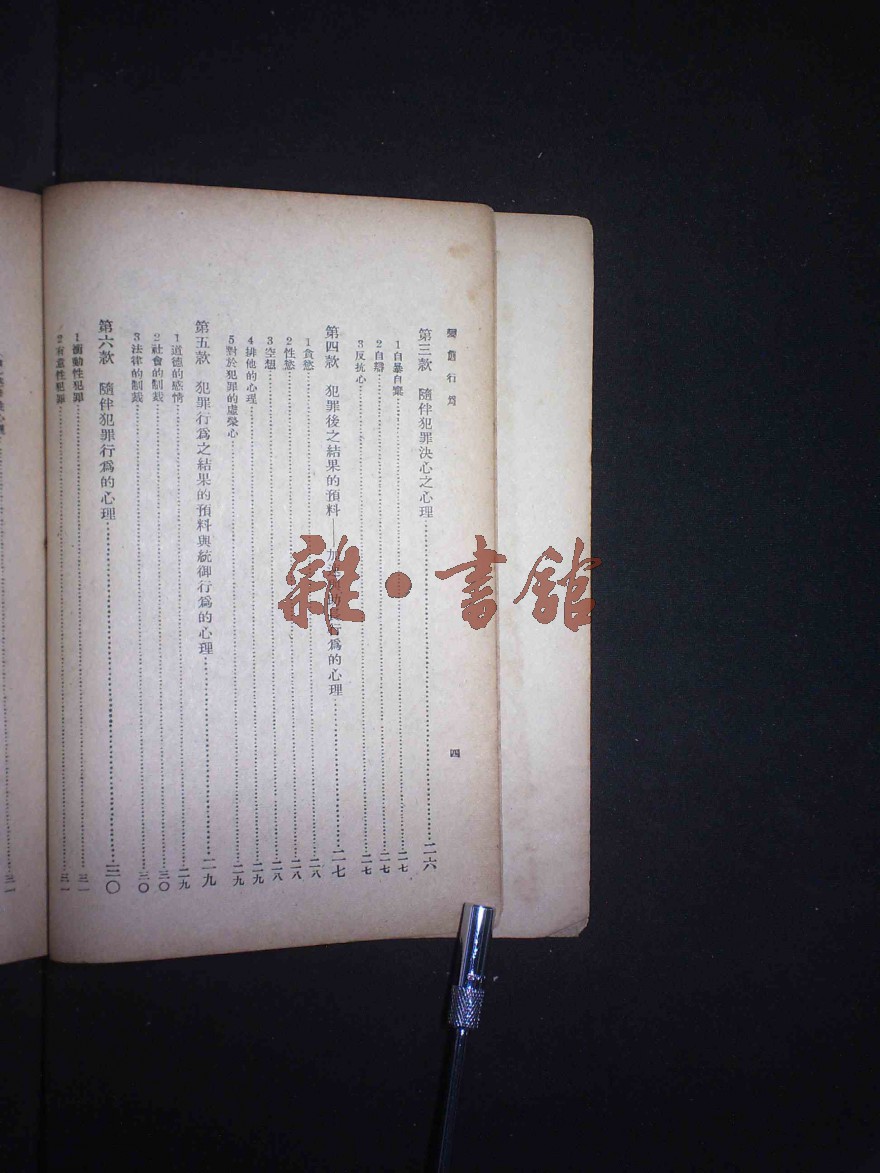 變態行為
四
第三款 隨伴犯罪決心之心理……二六
1自暴自棄……二七
2自騙……二七
3反抗心……二七
第四款 犯罪後之結果的預料——加 行為的心理……二七
1貪慾……二八
2性慾……二八
3空想……二八
4排他的心理……二九
5對於犯罪的虛榮心……二九
第五款 犯罪行為之結果的預料與統御行為的心理……二九
1道德的感情……二九
2社會的制裁……三〇
3法律的制裁……三〇
第六款 隨伴犯罪行為的心理……三〇
1衝動性犯罪……三一
2有意性犯罪……三一
雜·書館